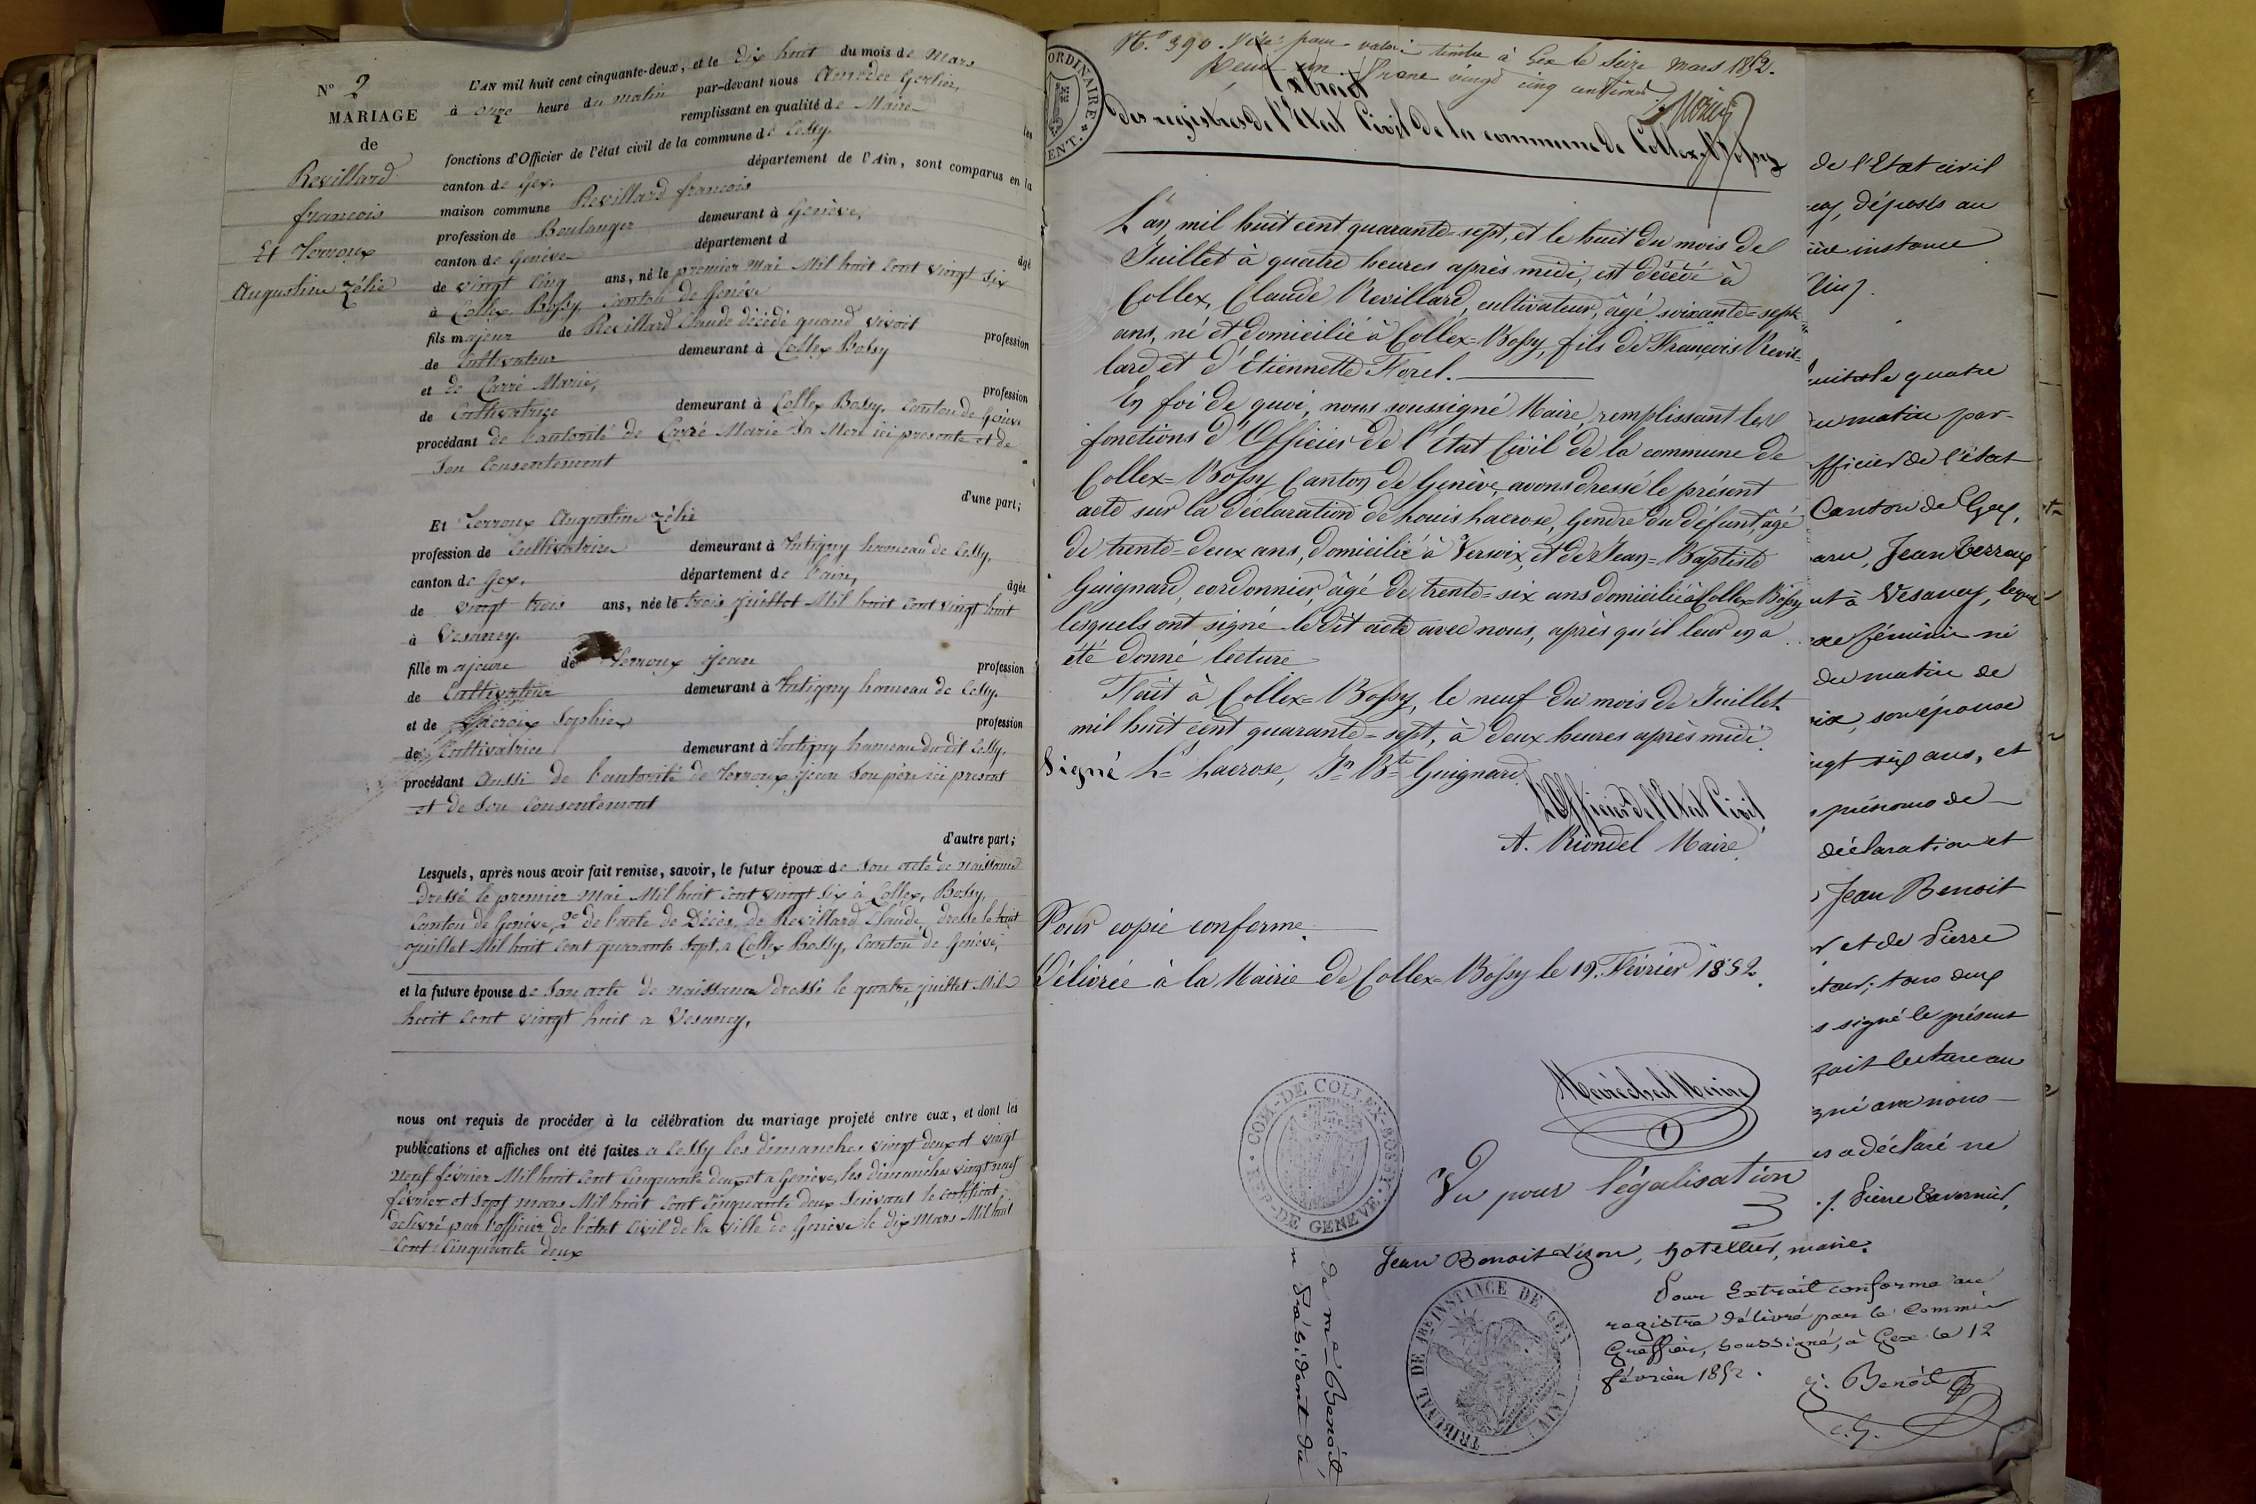 N° 2
MARIAGE
de
Revillard
francois
Et Verroux
Augustine Zélie
L'AN mil huit cent cinquante-deux, et le dix huit du mois de Mars
à onze heure du matin par-devant nous Amédée Gerlier,
remplissant en qualité de Maire les
fonctions d'Officier de l'état civil de la commune de Cessy.
canton de Gex. département de l'Ain, sont comparus en la
maison commune Revillard francois
profession de Boulanger demeurant à Genève,
canton de Genève département d
âgé
de vingt cinq ans, né le premier Mai Mil huit Cent vingt Six
à Collex Bossy, canton de Genève
fils majeur de Revillard Claude décédé quand vivoit
profession
de Cultivateur demeurant à Collex Bossy
et de Carré Marie,
profession
de Cultivatrice demeurant à Collex Bossy, Canton de Genève
procédant de l'autorité de Carré Marie Sa Mere ici presente et de
Son Consentement
d'une part;
Et Verroux Augustine Zélie
profession de Cultivatrice demeurant à Tutigny hameau de Cessy,
canton de Gex. département de l'ain,
âgée
de vingt trois ans, née le trois Juillet Mil huit Cent vingt huit
à Vesancy.
fille majeure de Verroux Jean
profession
de Cultivateur demeurant à Tutigny hameau de Cessy.
et de Lacroix Sophie
profession
de Cultivatrice demeurant à Tutigny hameau du dit Cessy,
procédant aussi de l'autorité de Verroux Jean Son père ici present
et de Son Consentement
d'autre part;
Lesquels, après nous avoir fait remise, savoir, le futur époux de Son acte de naissance
Dressé le premier Mai Mil huit Cent vingt Six à Collex, Bossy,
Canton de Genève, 2° de l'acte de Décès, de Revillard Claude, dressé le huit
Juillet Mil huit Cent quarante Sept, a Collex Bossy, Canton de Genève,
et la future épouse de Son acte de naissance dressé le quatre juillet Mil
huit Cent vingt huit a Vesancy,
nous ont requis de procéder à la célébration du mariage projeté entre eux, et dont les
publications et affiches ont été faites a Cessy les dimanches vingt deux et vingt
neuf février Mil huit Cent Cinquante deux et a Genève, les dimanches vingt neuf
février et Sept mars Mil huit Cent Cinquante deux Suivant le certificat
délivré par l'officier de l'état Civil de la ville de Genève le dix Mars Mil huit
Cent Cinquante deux
ORDINAIRE
N° 390. Visé pour valoir timbre à Gex le Seize Mars 1852.
Reçu un franc vingt cinq centimes
Extrait
des registres de l'Etat Civil de la commune de Collex-Bossy
L'an mil huit cent quarante=sept, et le huit du mois de
Juillet à quatre heures après midi, est décédé à
Collex, Claude Revillard, cultivateur, âgé soixante=sept
ans, né et domicilié à Collex=Bossy, fils de François Revil=
lard et d'Etiennette Forel.
En foi de quoi, nous soussigné Maire, remplissant les
fonctions d'Officier de l'Etat Civil de la commune de
Collex=Bossy Canton de Genève, avons dressé le présent
acte sur la déclaration de Louis Lacrose, Gendre du défunt, âgé
de trente=deux ans, domicilié à Versoix, et de Jean=Baptiste
Guignard, cordonnier, âgé de trente=six ans domicilié à Collex=Bossy
lesquels ont signé le dit acte avec nous, après qu'il leur en a
été donné lecture
Fait à Collex=Bossy, le neuf du mois de Juillet
mil huit cent quarante=sept, à deux heures après midi.
Signé Ls Lacrose, Jn Bte Guignard
L'Officier de l'Etat Civil,
A. Riondel Maire.
Pour copie conforme.
Délivrée à la Mairie de Collex=Bossy le 19. Février 1852.
Maréchal Maire
COM-DE COLLEX-BOSSY
REP-DE GENEVE
Vu pour légalisation
de me Benoit,
Président du
de l'Etat civil
déposés au
instance
quatre
du matin par-
officier de l'état
Canton de Gex,
Jean Verroux
à Vesancy, lequel
féminin né
du matin de
son épouse
six ans, et
prénoms de
déclaration et
Jean Benoit
et de Pierre
tous deux
signé le présent
fait lecture au
avec nous
a déclaré ne
Pierre Tavernier,
Jean Benoit Lizon, hotellier, maire.
TRIBUNAL DE 1RE INSTANCE DE GEX (AIN)
Pour Extrait conforme au
registre délivré par le Commis
Greffier, soussigné, à Gex le 12
février 1852.
J. Benoit
c. G.